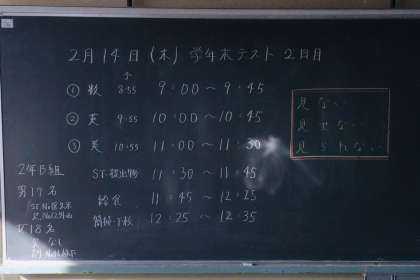 2月14日(木)学年末テスト 2日目
① 数 8:55 9:00〜9:45
② 英 9:55 10:00〜10:45
③ 10:55 11:00〜11:30
ST・提出物 11:30〜11:45
給食 11:45〜12:25
簡掃・下校 12:25〜12:35
見ない
見せない
見られない
2年B組
男17名
女18名
なし